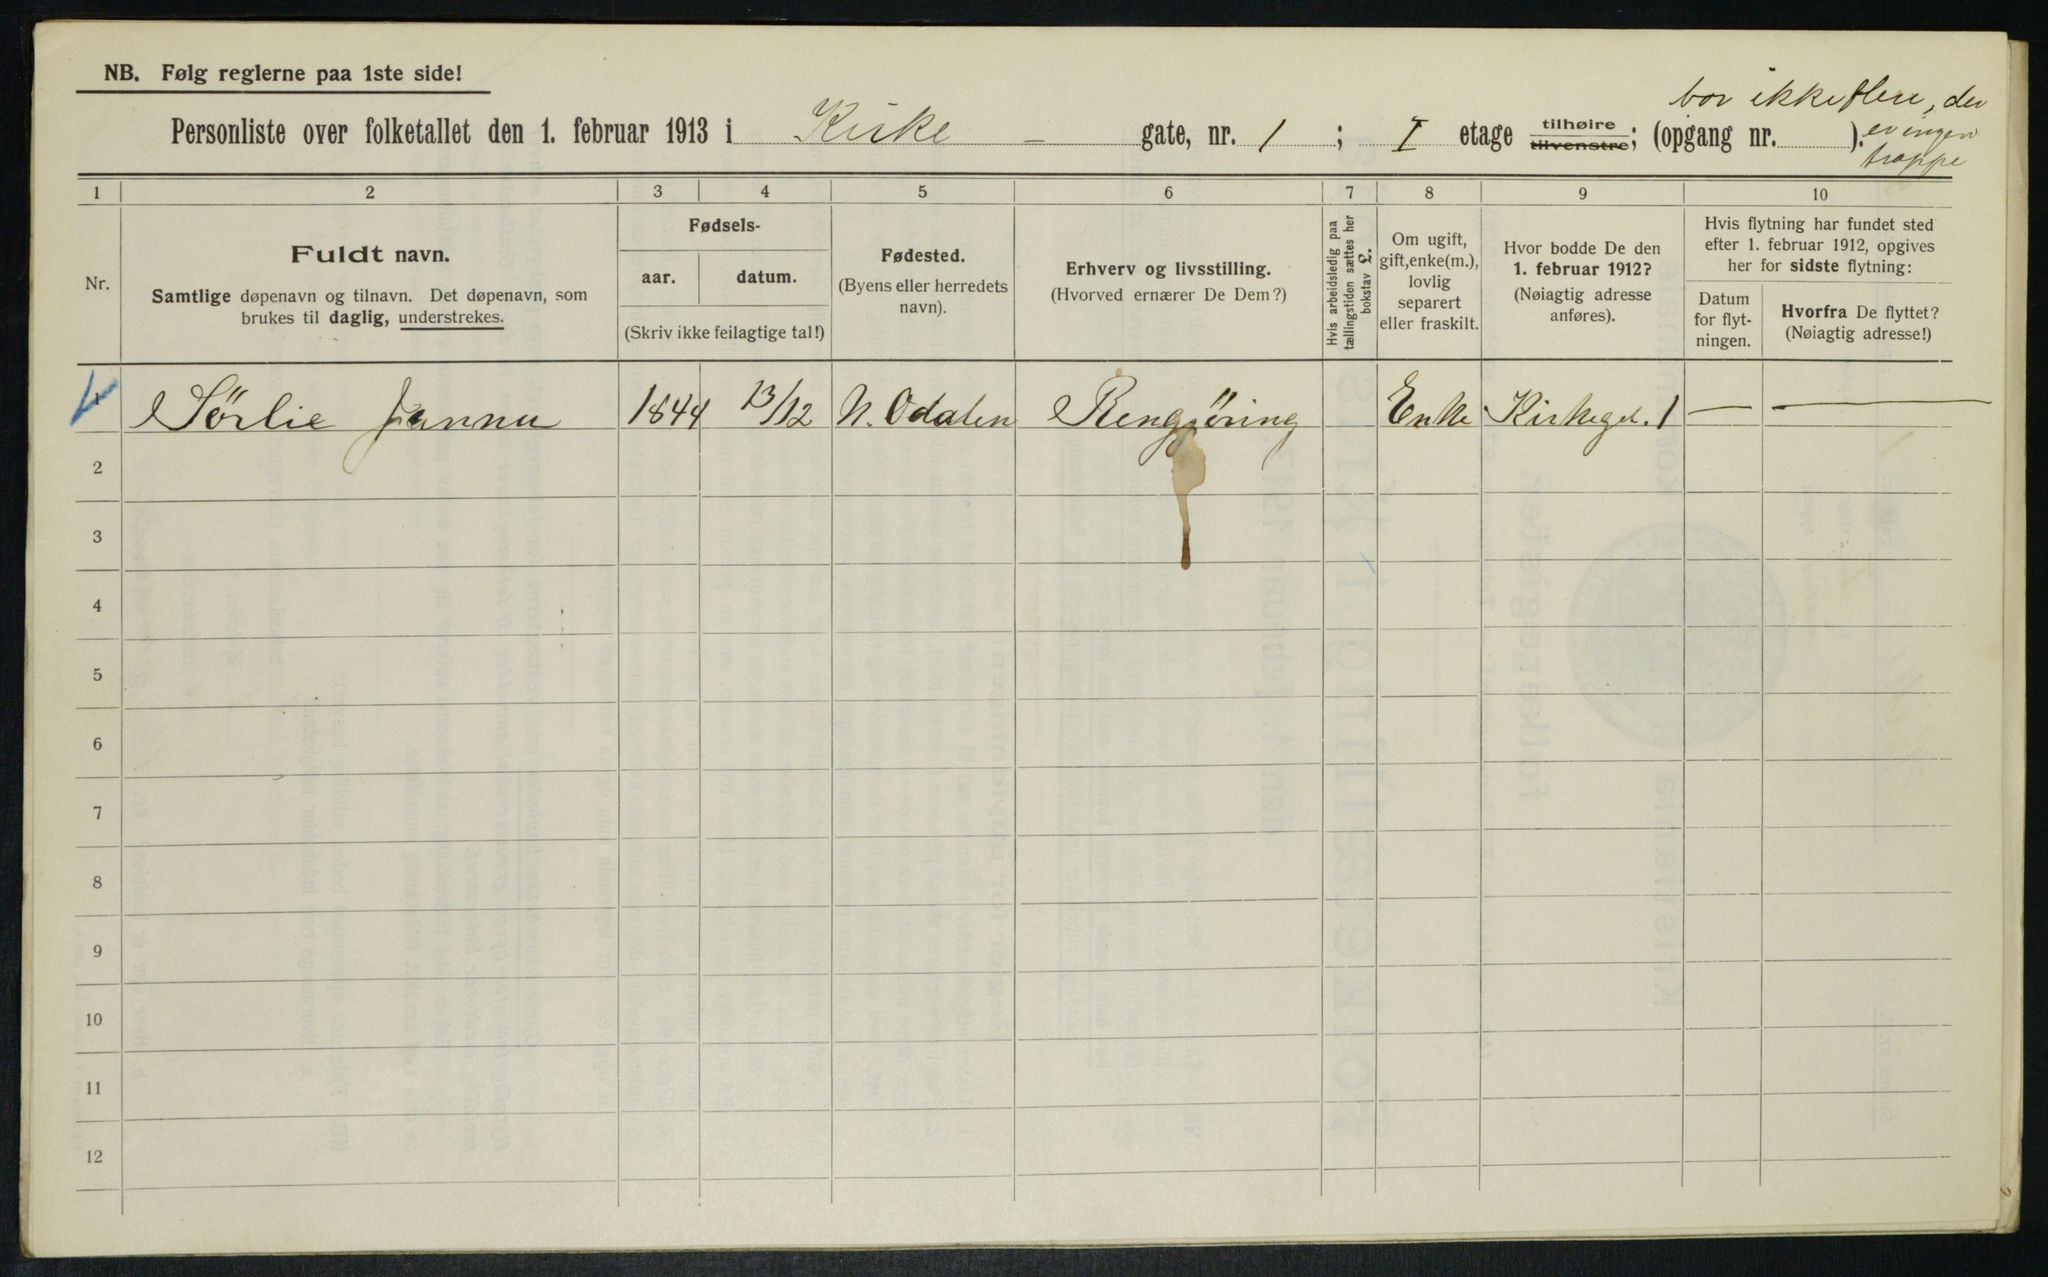 NB. Følg reglerne paa 1ste side!
bor ikke flere, der
er ingen
trappe
Personliste over folketallet den 1. februar 1913 i Kirke - gate, nr. 1 ; I etage tilhøire tilvenstre; (opgang nr. ).
1 2 3 4 5 6 7 8 9 10
Nr.
Fuldt navn.
Samtlige døpenavn og tilnavn. Det døpenavn, som
brukes til daglig, understrekes.
Fødsels-
aar. datum.
(Skriv ikke feilagtige tal!)
Fødested.
(Byens eller herredets
navn).
Erhverv og livsstilling.
(Hvorved ernærer De Dem?)
Hvis arbeidsledig paa
tællingstiden sættes her
bokstav L.
Om ugift,
gift, enke(m.),
lovlig
separert
eller fraskilt.
Hvor bodde De den
1. februar 1912?
(Nøiagtig adresse
anføres).
Hvis flytning har fundet sted
efter 1. februar 1912, opgives
her for sidste flytning:
Datum
for flyt-
ningen.
Hvorfra De flyttet?
(Nøiagtig adresse!)
1 Sørlie Janna 1844 13/12 N. Odalen Rengjöring Enke Kirkegd. 1 — —
2
3
4
5
6
7
8
9
10
11
12